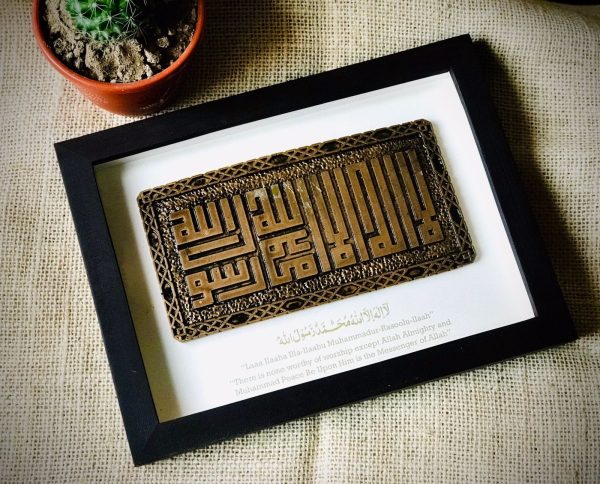 لا إله إلا الله محمد رسول الله
لَا إِلٰهَ إِلَّا اللهُ مُحَمَّدٌ رَسُولُ اللهِ
"Laaa Ilaaha Illa-llaahu Muhammadur-Rasoolu-llaah"
"There is none worthy of worship except Allah Almighty and
Muhammad Peace Be Upon Him is the Messenger of Allah"